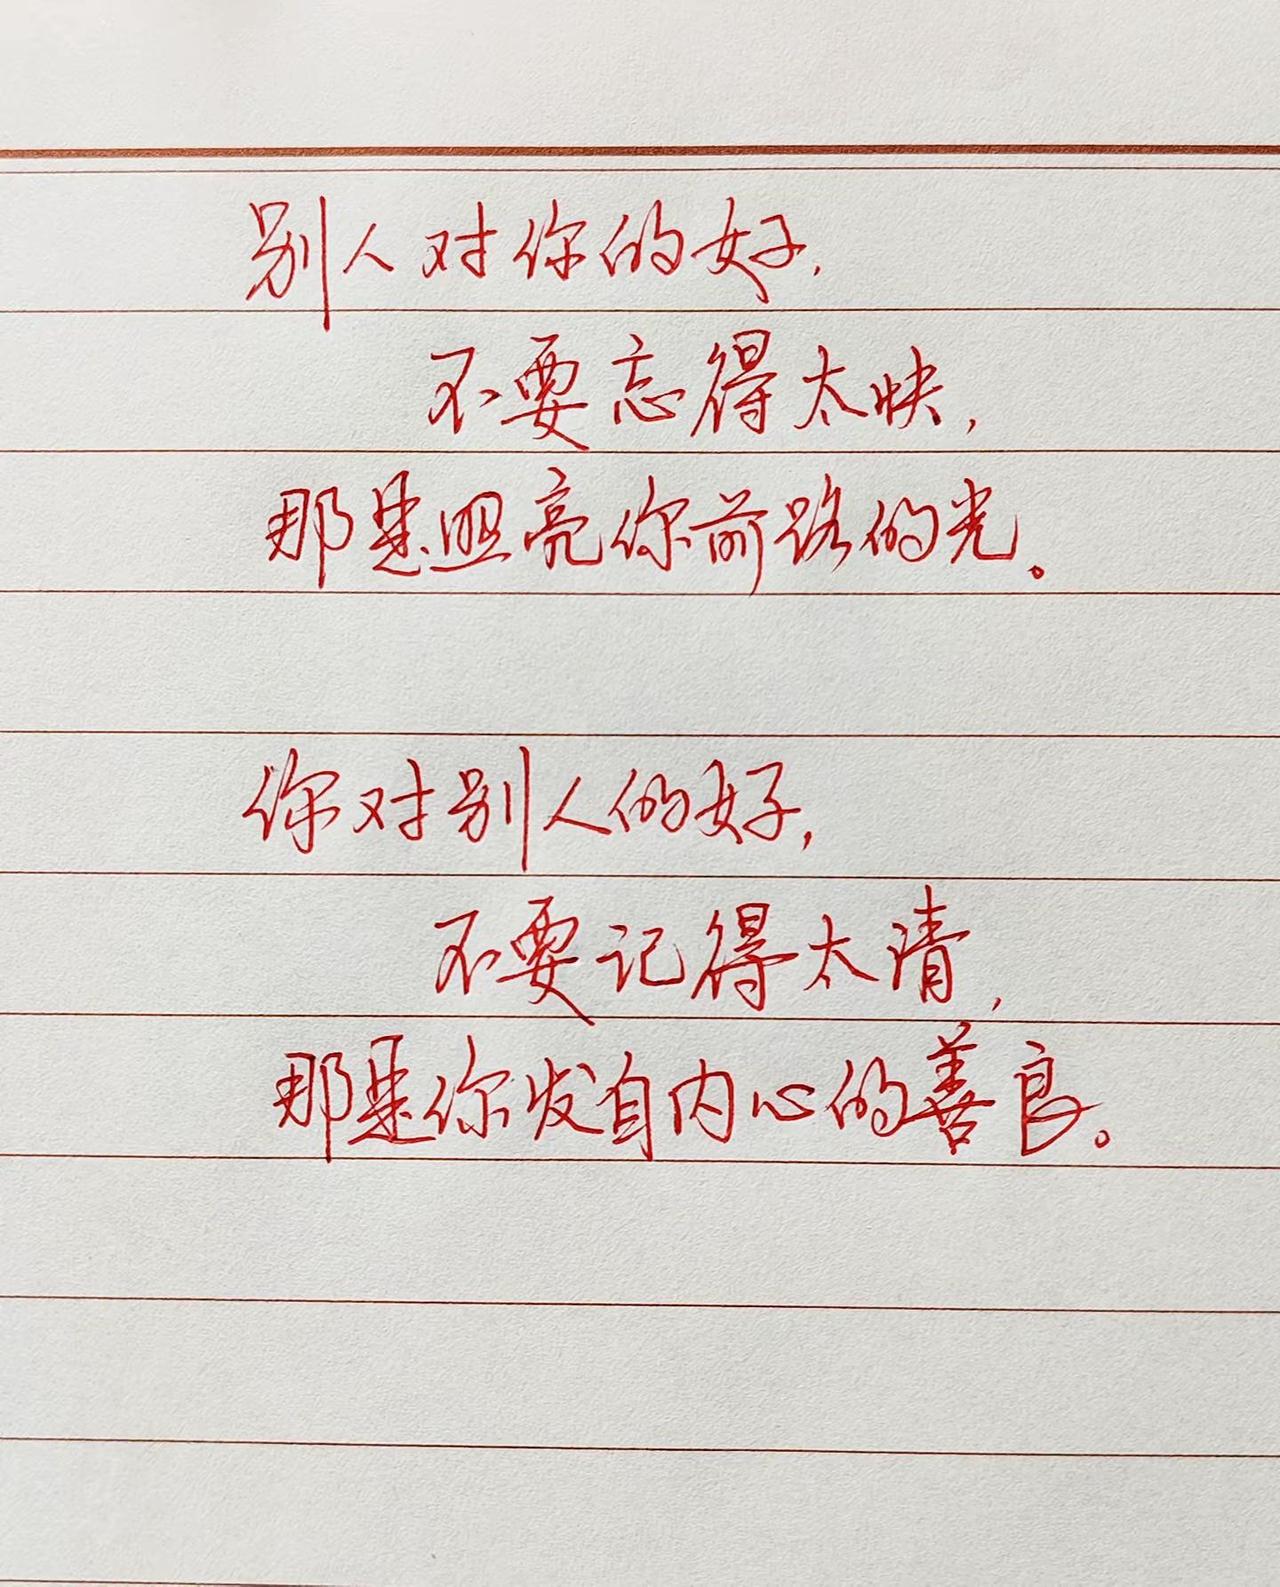 别人对你的好,
不要忘得太快,
那是照亮你前路的光。
你对别人的好,
不要记得太清,
那是你发自内心的善良。